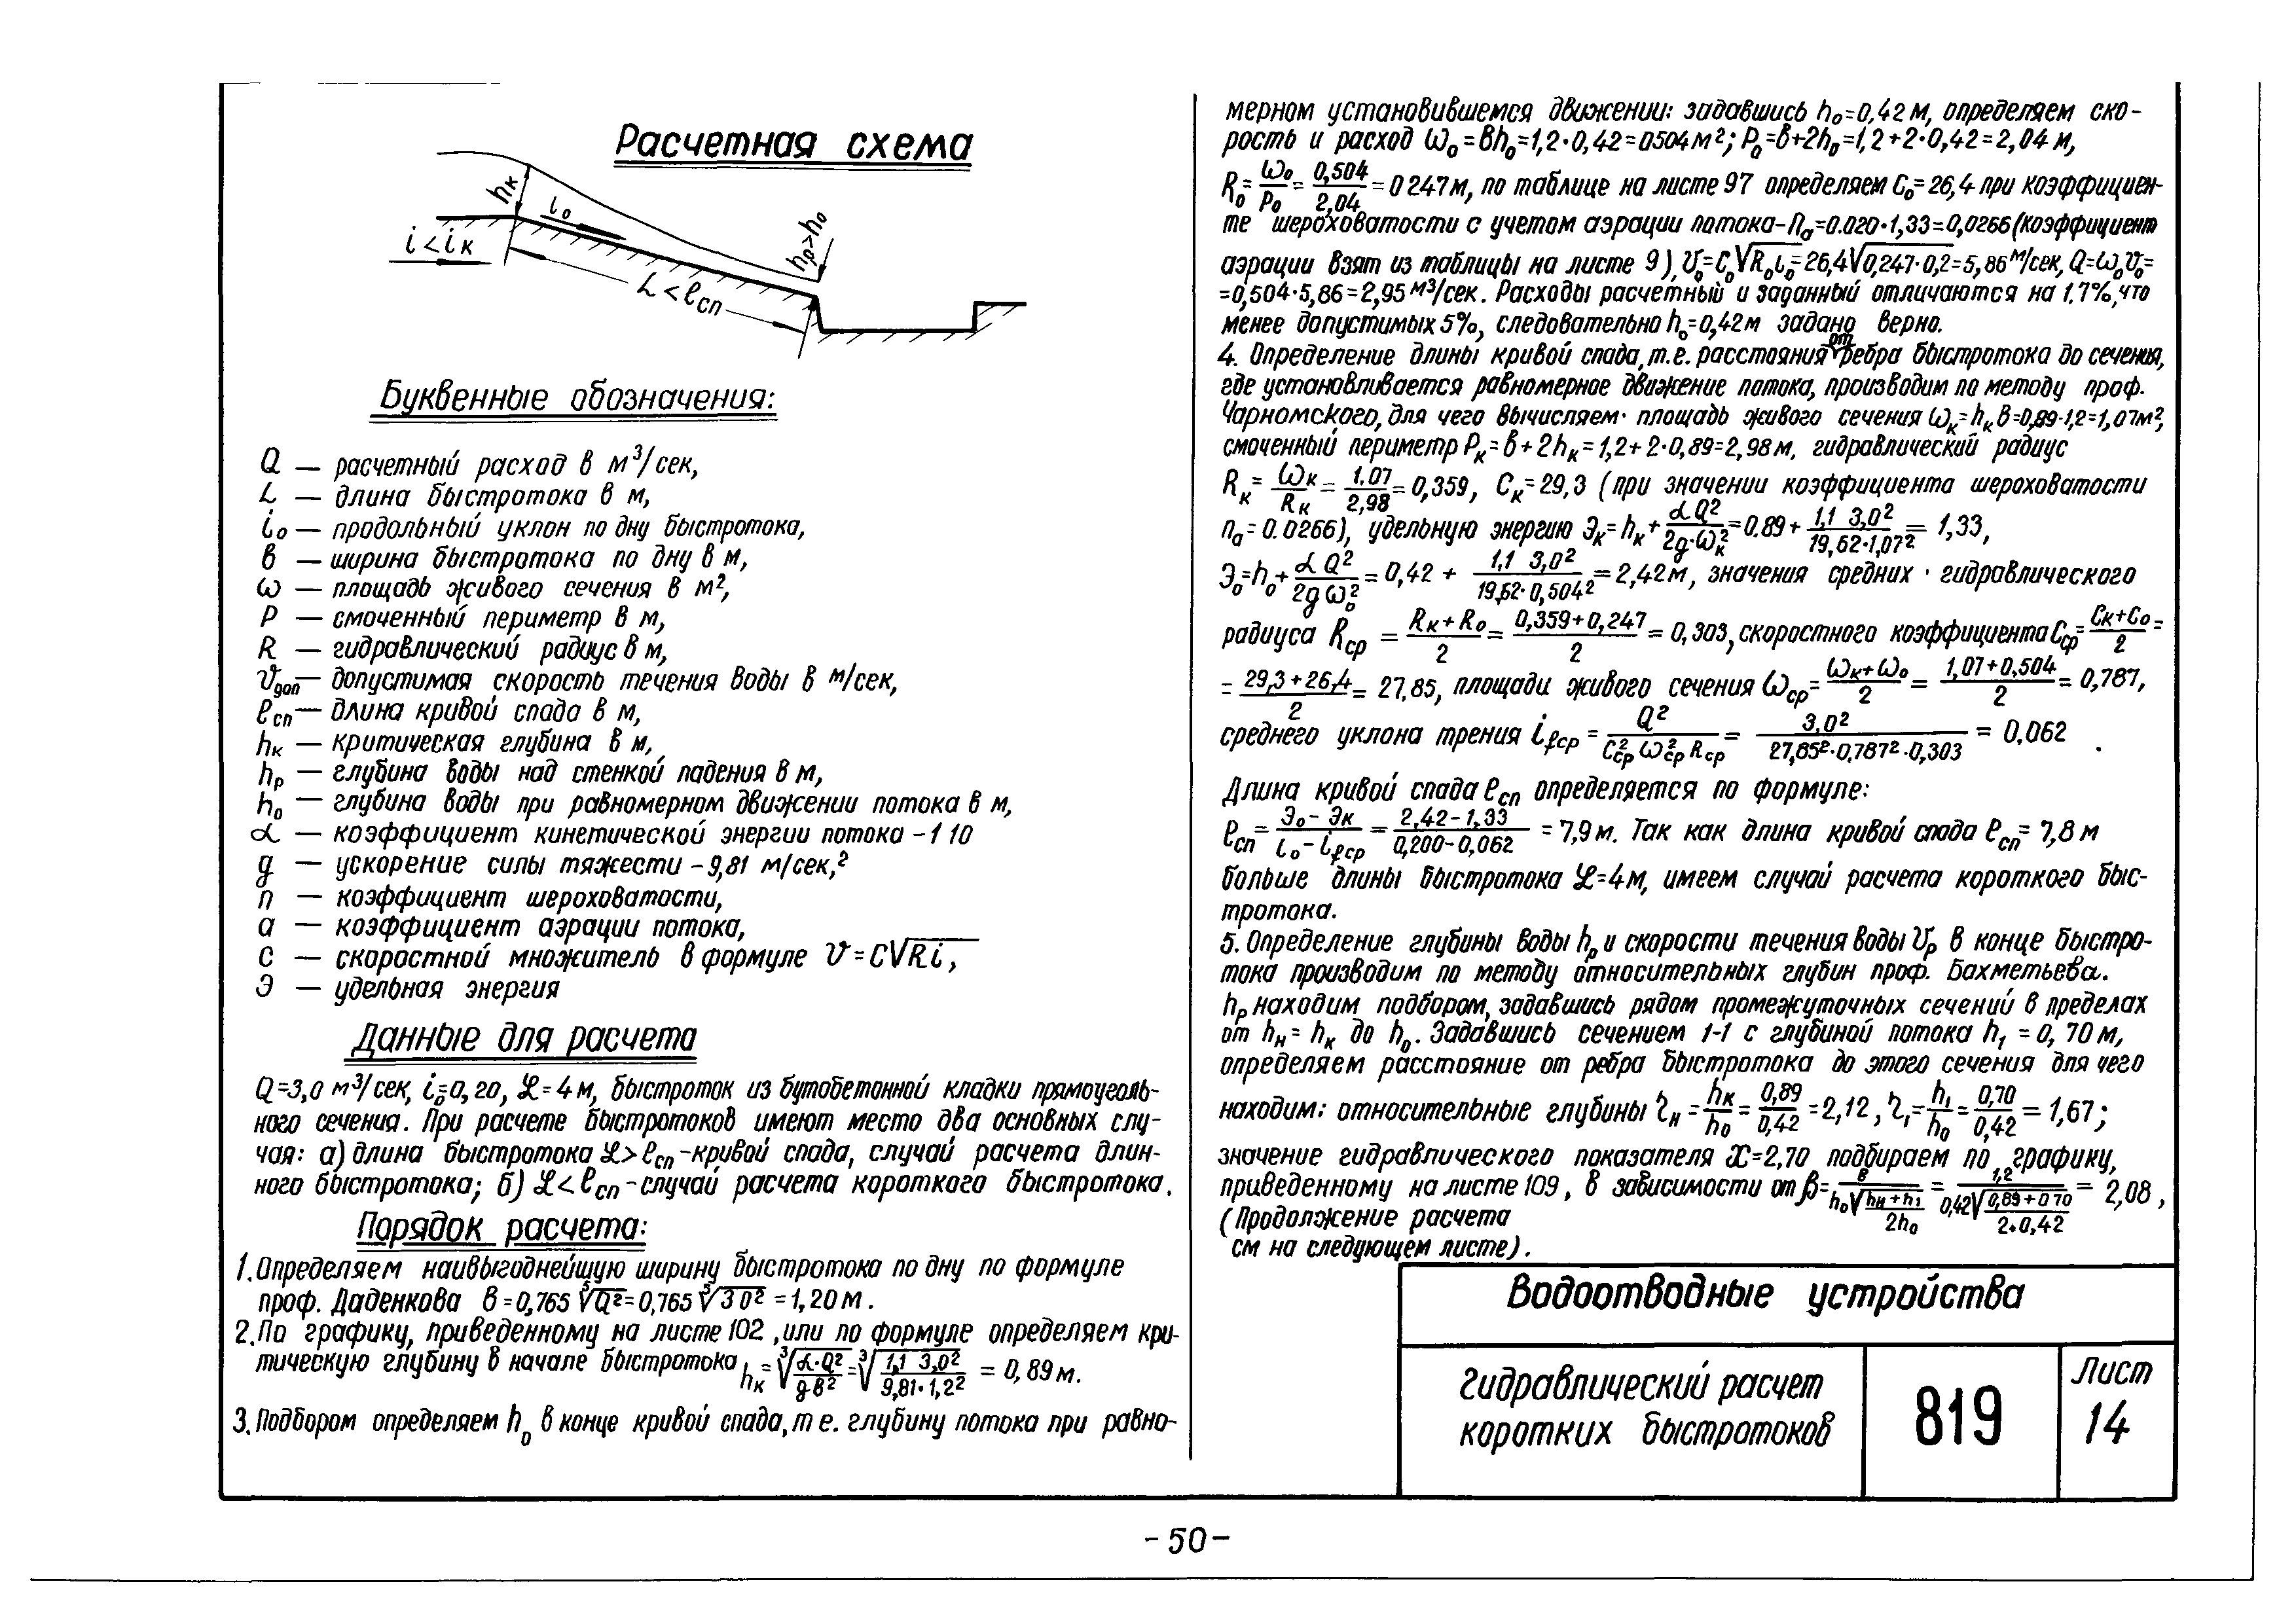 Расчетная схема
hк
i₀
hр>h₀
i<iк
L<ℓсп
Буквенные обозначения:
Q — расчетный расход в м³/сек,
L — длина быстротока в м,
i₀ — продольный уклон по дну быстротока,
в — ширина быстротока по дну в м,
ω — площадь живого сечения в м²,
P — смоченный периметр в м,
R — гидравлический радиус в м,
𝒱доп — допустимая скорость течения воды в м/сек,
ℓсп — длина кривой спада в м,
hк — критическая глубина в м,
hр — глубина воды над стенкой падения в м,
h₀ — глубина воды при равномерном движении потока в м,
α — коэффициент кинетической энергии потока - 1 10
g — ускорение силы тяжести - 9,81 м/сек,²
n — коэффициент шероховатости,
a — коэффициент аэрации потока,
C — скоростной множитель в формуле 𝒱=C√Ri,
Э — удельная энергия
Данные для расчета
Q=3,0 м³/сек, i₀=0,20, ℒ=4м, быстроток из бутобетонной кладки прямоуголь-
ного сечения. При расчете быстротоков имеют место два основных слу-
чая: а) длина быстротока ℒ>ℓсп-кривой спада, случай расчета длин-
ного быстротока; б) ℒ<ℓсп-случай расчета короткого быстротока.
Порядок расчета:
1. Определяем наивыгоднейшую ширину быстротока по дну по формуле
проф. Даденкова в=0,765 ⁵√Q²=0,765 ⁵√3 0²=1,20м.
2. По графику, приведенному на листе 102, или по формуле определяем кри-
тическую глубину в начале быстротока hк=³√(α·Q²/gв²)=³√(1,1 3,0²/9,81·1,2²)=0,89м.
3. Подбором определяем h₀ в конце кривой спада, т е. глубину потока при равно-
мерном установившемся движении: задавшись h₀=0,42м, определяем ско-
рость и расход ω₀=вh₀=1,2·0,42=0504м²; P₀=в+2h₀=1,2+2·0,42=2,04 м,
R₀=ω₀/P₀=0,504/2,04=0 247м, по таблице на листе 97 определяем C₀=26,4 при коэффициен-
те шероховатости с учетом аэрации потока-nа=0.020·1,33=0,0266 (коэффициент
аэрации взят из таблицы на листе 9), 𝒱₀=C₀√R₀i₀=26,4√0,247·0,2=5,86м/сек, Q=ω₀𝒱₀=
=0,504·5,86=2,95 м³/сек. Расходы расчетный и заданный отличаются на 1.7%, что
менее допустимых 5%, следовательно h₀=0,42м задано верно.
4. Определение длины кривой спада, т.е. расстояния от ребра быстротока до сечения,
где устанавливается равномерное движение потока, производим по методу проф.
Чарномского, для чего вычисляем· площадь живого сечения ωк=hкв=0,89·1,2=1,07м²,
смоченный периметр Pк=в+2hк=1,2+2·0,89=2,98м, гидравлический радиус
Rк=ωк/Rк=1,07/2,98=0,359, Cк=29,3 (при значении коэффициента шероховатости
nа=0.0266), удельную энергию Эк=hк+αQ²/2g·ωк²=0.89+1,1 3,0²/19,62·1,07²=1,33,
Э₀=h₀+αQ²/2gω₀²=0,42+1,1 3,0²/19,62·0,504²=2,42м, значения средних · гидравлического
радиуса Rср=Rк+R₀/2=0,359+0,247/2=0,303, скоростного коэффициента Cср=Cк+C₀/2=
=29,3+26,4/2=27,85, площади живого сечения ωср=ωк+ω₀/2=1,07+0,504/2=0,787,
среднего уклона трения ifср=Q²/C²ср ω²ср Rср=3,0²/27,85²·0,787²·0,303=0,062.
Длина кривой спада ℓсп определяется по формуле:
ℓсп=Э₀-Эк/i₀-ifср=2,42-1,33/0,200-0,062=7,9м. Так как длина кривой спада ℓсп=7,8 м
больше длины быстротока ℒ=4м, имеем случай расчета короткого быс-
тротока.
5. Определение глубины воды hр и скорости течения воды 𝒱р в конце быстро-
тока производим по методу относительных глубин проф. Бахметьева.
hр находим подбором, задавшись рядом промежуточных сечений в пределах
от hн=hк до h₀. Задавшись сечением 1-1 с глубиной потока h₁=0,70м,
определяем расстояние от ребра быстротока до этого сечения для чего
находим: относительные глубины ηн=hк/h₀=0,89/0,42=2,12, η₁=h₁/h₀=0,70/0,42=1,67;
значение гидравлического показателя X=2,70 подбираем по графику,
приведенному на листе 109, в зависимости от β=в/h₀√(hн+h₁/2h₀)=1,2/0,42√(0,89+0 70/2·0,42)=2,08,
(Продолжение расчета
см на следующем листе).
Водоотводные устройства
Гидравлический расчет
коротких быстротоков
819
Лист
14
-50-